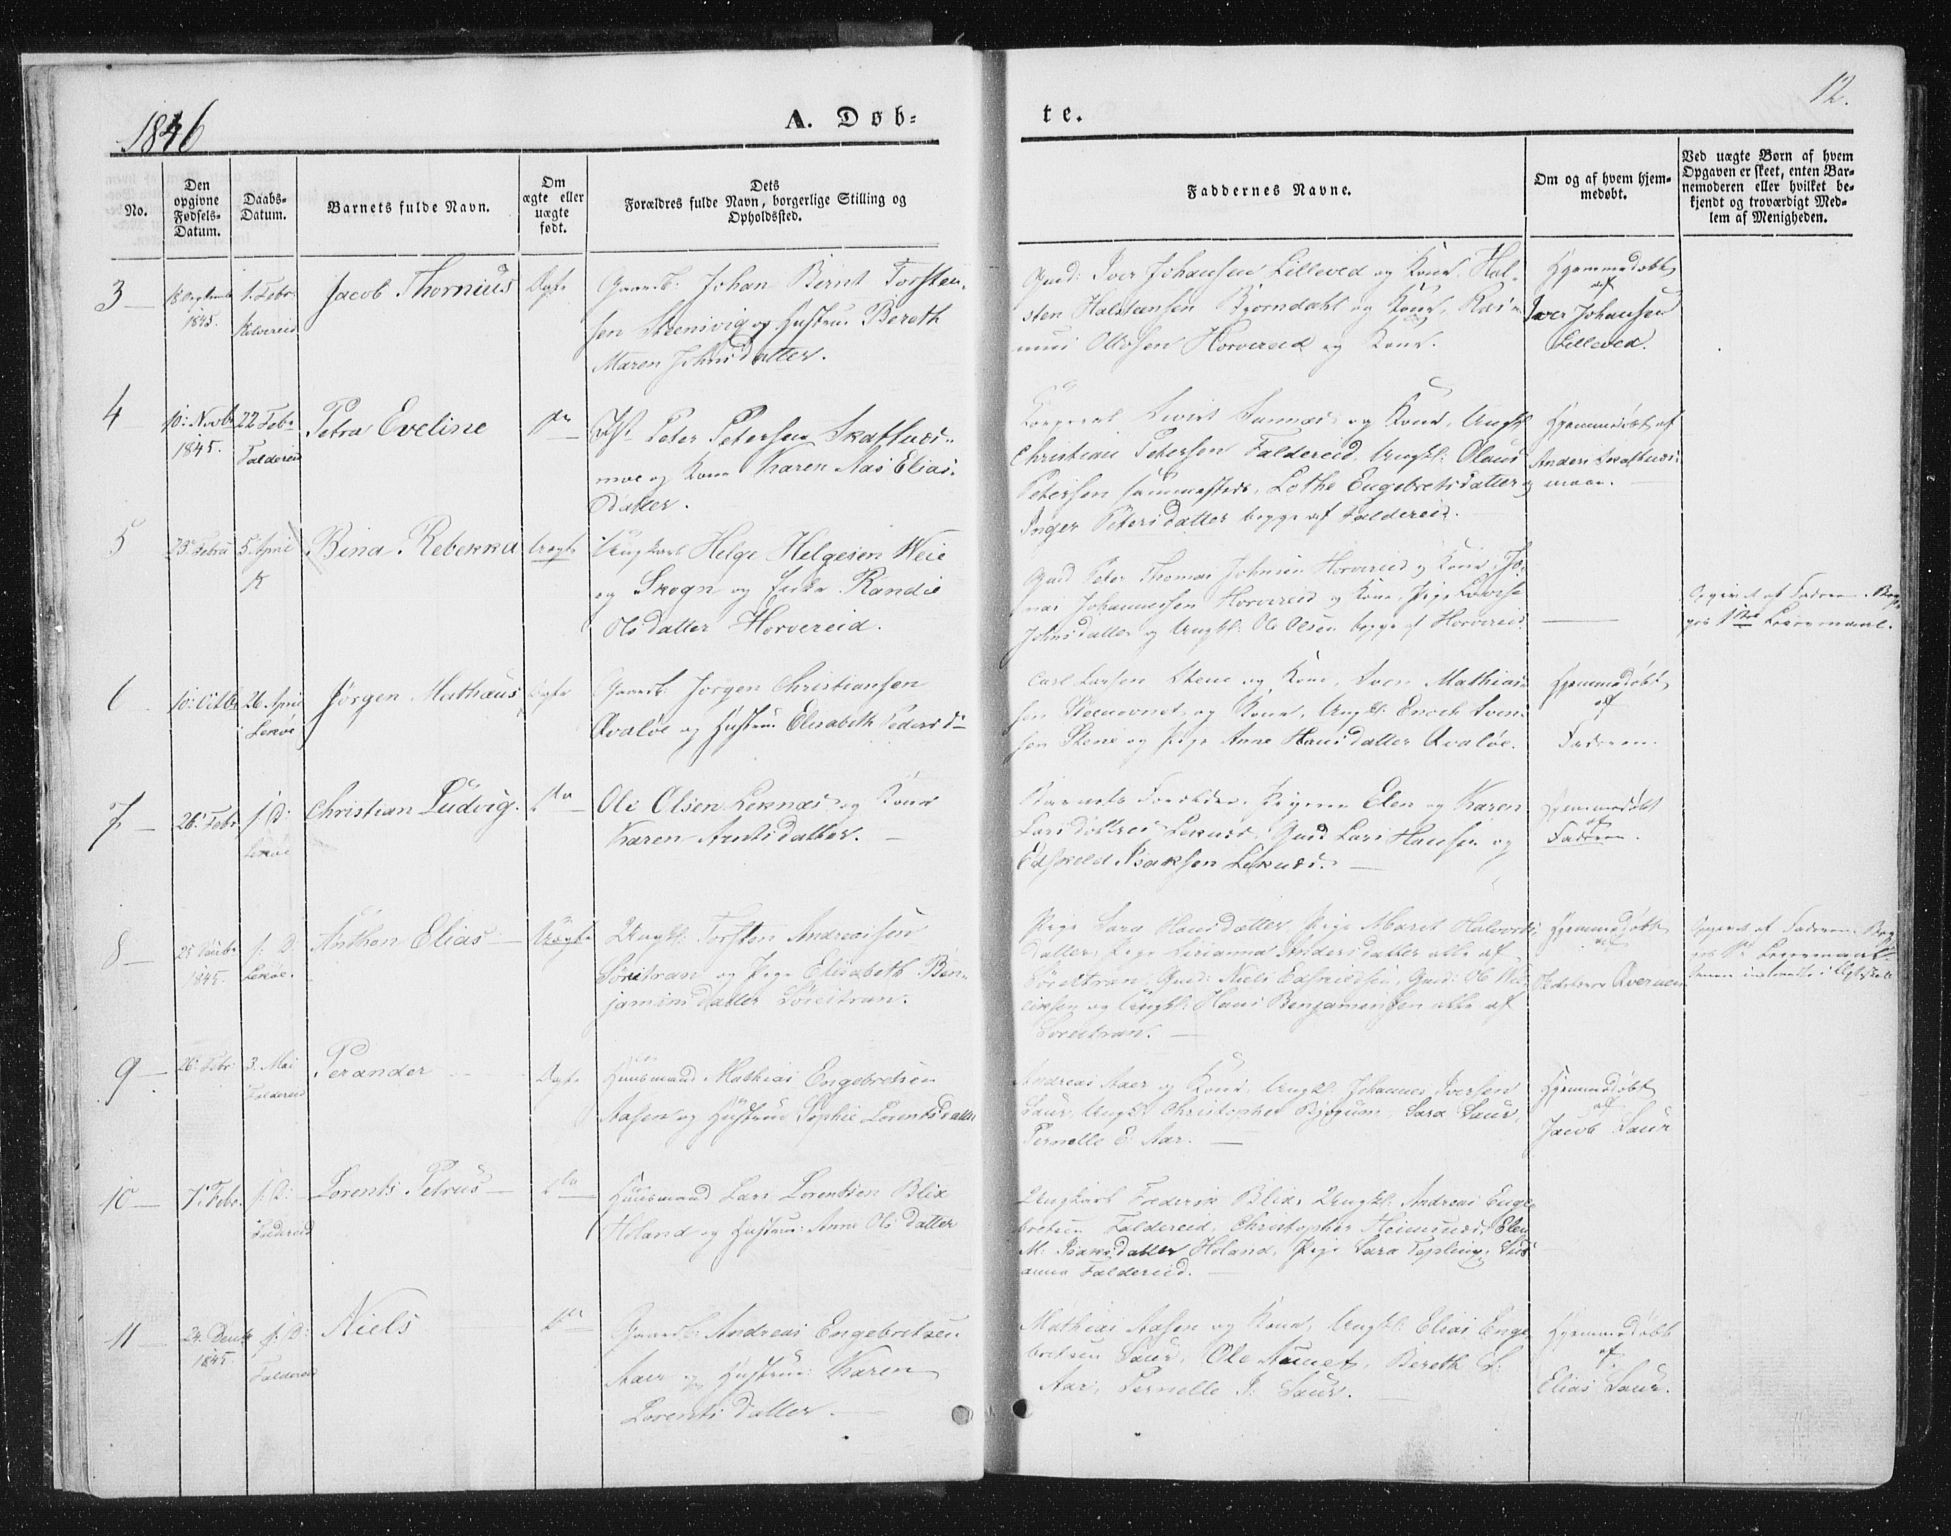 1846
A. Døb-
te.
12.
No.
Den
opgivne
Fødsels-
Datum.
Daabs-
Datum.
Barnets fulde Navn.
Om
ægte eller
uægte
født.
Dets
Forældres fulde Navn, borgerlige Stilling og
Opholdssted.
Faddernes Navne.
Om og af hvem hjem-
medøbt.
Ved uægte Børn af hvem
Opgaven er skeet, enten Bar-
nemoderen eller hvilket be-
kjendt og troværdigt Med-
lem af Menigheden.
3
1845.
1. Febr.
Jacob Thornius
Ægte
Gaardb. Johan Bernt Torsten-
sen Steensvig og Hustru Bereth
Maren Johnsdatter.
Gmd: Iver Johansen Lilleved og Kone, Hal-
sten Halstensen Bjørndahl og Kone, Ras-
mus Ollesen Horvereid og Kone.
Hjemmedøbt
af
Iver Johansen
Lilleved.
4
10: Novb
1845.
22 Febr
Faldereid
Petra Eveline
Peter Petersen Skatnæs-
moe og Kone Karen Aas Elias-
datter.
og Kone, Ungk.
Christian Petersen Faldereid, Ungk: Olaus
Petersen sammesteds, Lethe Engebretsdatter og
Inger Petersdatter begge af Faldereid.
Hjemmedøbt af
Anders Skatnæs-
moen.
5
23 Febru
5 April
Bina Rebekka
Uægte
Ungkarl Helge Helgesen Weie
og Skogn og Enke Randie
Olsdatter Horvereid.
Gmd Peter Thomas Johnsen Horvereid og Kone, Jo-
nas Johannessen Horvereid og Kone, Pige Lovise
Johnsdatter og Ungk: Ole Olsen begge af Horvereid.
Opgivet af Faderen. Beg-
ges 1ste Leiermaal.
6
10: Octbr
26 April
Lekøe
Jørgen Mathæus
Ægte
Gaardb: Jørgen Christiansen
Qvaløe og Hustru Elisabeth Peders dr
Carl Larsen Stene og Kone, Sven Mathias-
sen og Kone, Ungk: Enoch Sven-
sen Stene og Pige Anne Hansdatter Qvaløe.
Hjemmedøbt
af
Faderen.
7
26: Febr
f. D:
Lekøe
Christian Ludvig.
Ole Olsen Leknæs og Kone
Karen Arntsdatter.
Barnets Forældre, Pigerne Elen og Karen
Larsdøttrer Leknæs, Gmd Lars Hansen og
Isaksen Leknæs.
Hjemmedøbt
af
Faderen.
8
1845.
f. D
Lekøe.
Anthon Elias
Uægte
Ungk: Torsten Andreassen
Søreitran og Pige Elisabeth Ben-
jaminsdatter Søreitran.
Pige Sara Hansdatter, Pige Maret Halvors-
datter, Pige Andersdatter alle af
Søreitran, Gmd: Niels
og Ungk: Hans Benjaminsen alle af
Søreitran.
Hjemmedøbt
af
Opgivet af Faderen. Beg-
ges 1ste Leiermaal.
9
26: Febr
3. Mai
Faldereid
Perander
Ægte
Huusmand Mathias Engebretsen
Aasen og Hustrue Sophie Lorentsdatter
Andreas Aaer og Kone, Ungk: Johannes Iversen
Saur, Ungk: Christopher Bjørum, Sara Saur,
Pernelle E. Aar.
Hjemmedøbt
af
Jacob Saur
10
7: Febr.
f. D:
Faldereid
Lorents Petrus
Huusmand Lars Lorentsen Blix
Høland og Hustrue Anne Olsdatter
Ungkarl Frederik Blix, Ungk: Andreas Enge-
bretsen Faldereid, Christopher Heimnæs, Elen
M: Isaksdatter Høland, Pige Sara Tøpling, Sus-
anna Faldereid.
11
24. Decbr
1845.
f. D:
Faldereid
Niels
Gaardb. Andreas Engebretsen
Aaer og Hustrue Karen
Lorentsdatter.
Mathias Aasen og Kone, Ungk: Elias Enge-
bretsen Saur, Ole Aunet, Bereth E:
Aar, Pernelle I: Saur.
Hjemmedøbt
af
Elias Saur.